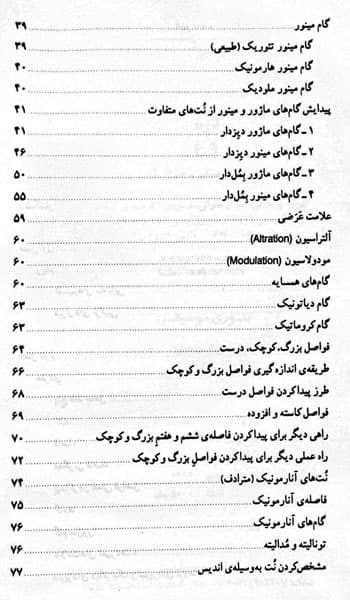 گام مینور ۳۹
گام مینور تئوریک (طبیعی) ۳۹
گام مینور هارمونیک ۴۰
گام مینور ملودیک ۴۰
پیدایش گام‌های ماژور و مینور از نُت‌های متفاوت ۴۱
۱ـ گام‌های ماژور دیِزدار ۴۱
۲ـ گام‌های مینور دیِزدار ۴۶
۳ـ گام‌های ماژور بِمُل‌دار ۵۰
۴ـ گام‌های مینور بِمُل‌دار ۵۵
علامت عَرَضی ۵۹
آلتراسیون (Altration) ۶۰
مودولاسیون (Modulation) ۶۰
گام‌های همسایه ۶۰
گام دیاتونیک ۶۳
گام کروماتیک ۶۳
فواصل بزرگ، کوچک، درست ۶۴
طریقه‌ی اندازه‌گیری فواصل بزرگ و کوچک ۶۶
طرز پیدا کردن فواصل درست ۶۸
فواصل کاسته و افزوده ۶۹
راهی دیگر برای پیدا کردن فاصله‌ی ششم و هفتم بزرگ و کوچک ۷۰
راه عملی دیگر برای پیدا کردن فواصل بزرگ و کوچک ۷۲
نُت‌های آنارمونیک (مترادف) ۷۴
فاصله‌ی آنارمونیک ۷۵
گام‌های آنارمونیک ۷۶
تونالیته و مُدالیته ۷۶
مشخص کردن نُت به‌وسیله‌ی اندیس ۷۷